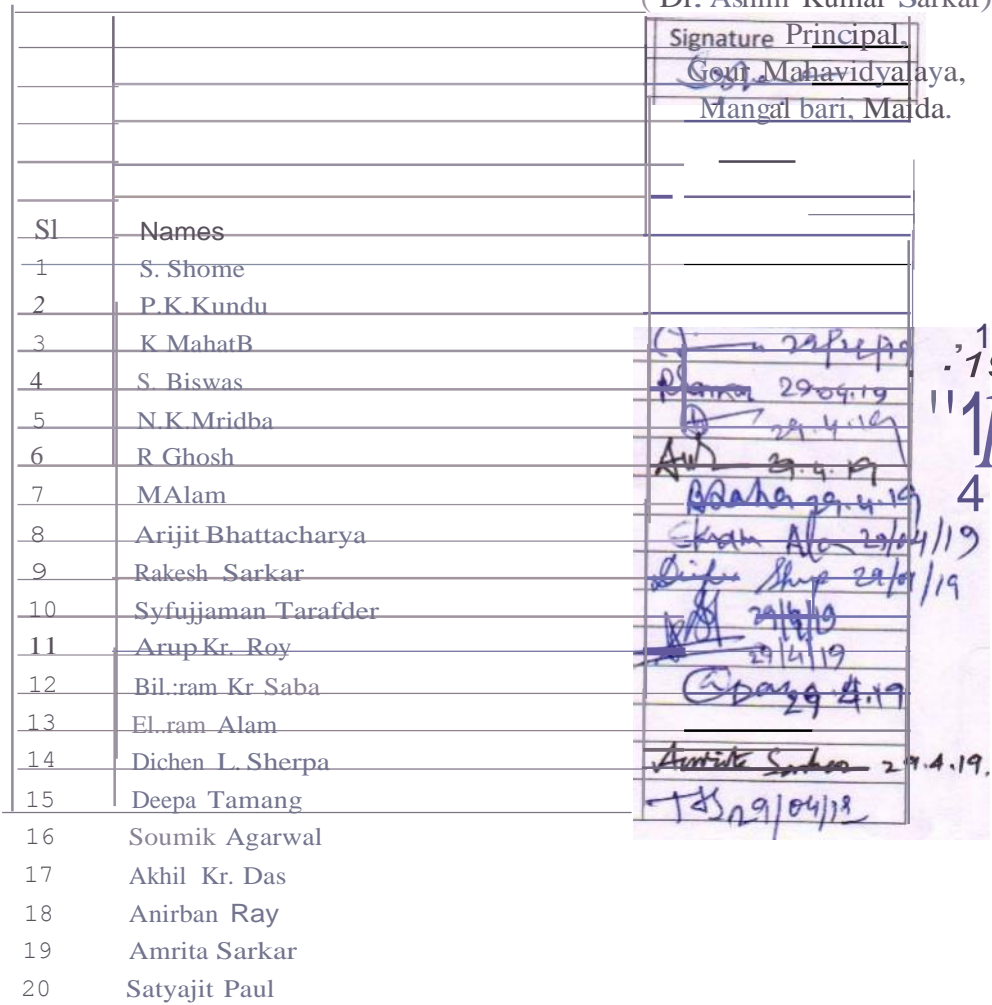 ( Dr. Ashim Kumar Sarkar)
Signature Principal,
Gour Mahavidyalaya,
Mangal bari, Maida.
Sl Names
1 S. Shome
2 P.K.Kundu
3 K MahatB
4 S. Biswas 29.04.19
5 N.K.Mridba 29.4.19
6 R Ghosh 29.4.19
7 MAlam 29.4.19
8 Arijit Bhattacharya Ekram Alam 29/04/19
9 Rakesh Sarkar 29/04/19
10 Syfujjaman Tarafder 29/4/19
11 Arup Kr. Roy 29/4/19
12 Bil.:ram Kr Saba 29.4.19
13 El..ram Alam
14 Dichen L. Sherpa Amrita Sarkar 29.4.19.
15 Deepa Tamang 29/04/19
16 Soumik Agarwal
17 Akhil Kr. Das
18 Anirban Ray
19 Amrita Sarkar
20 Satyajit Paul